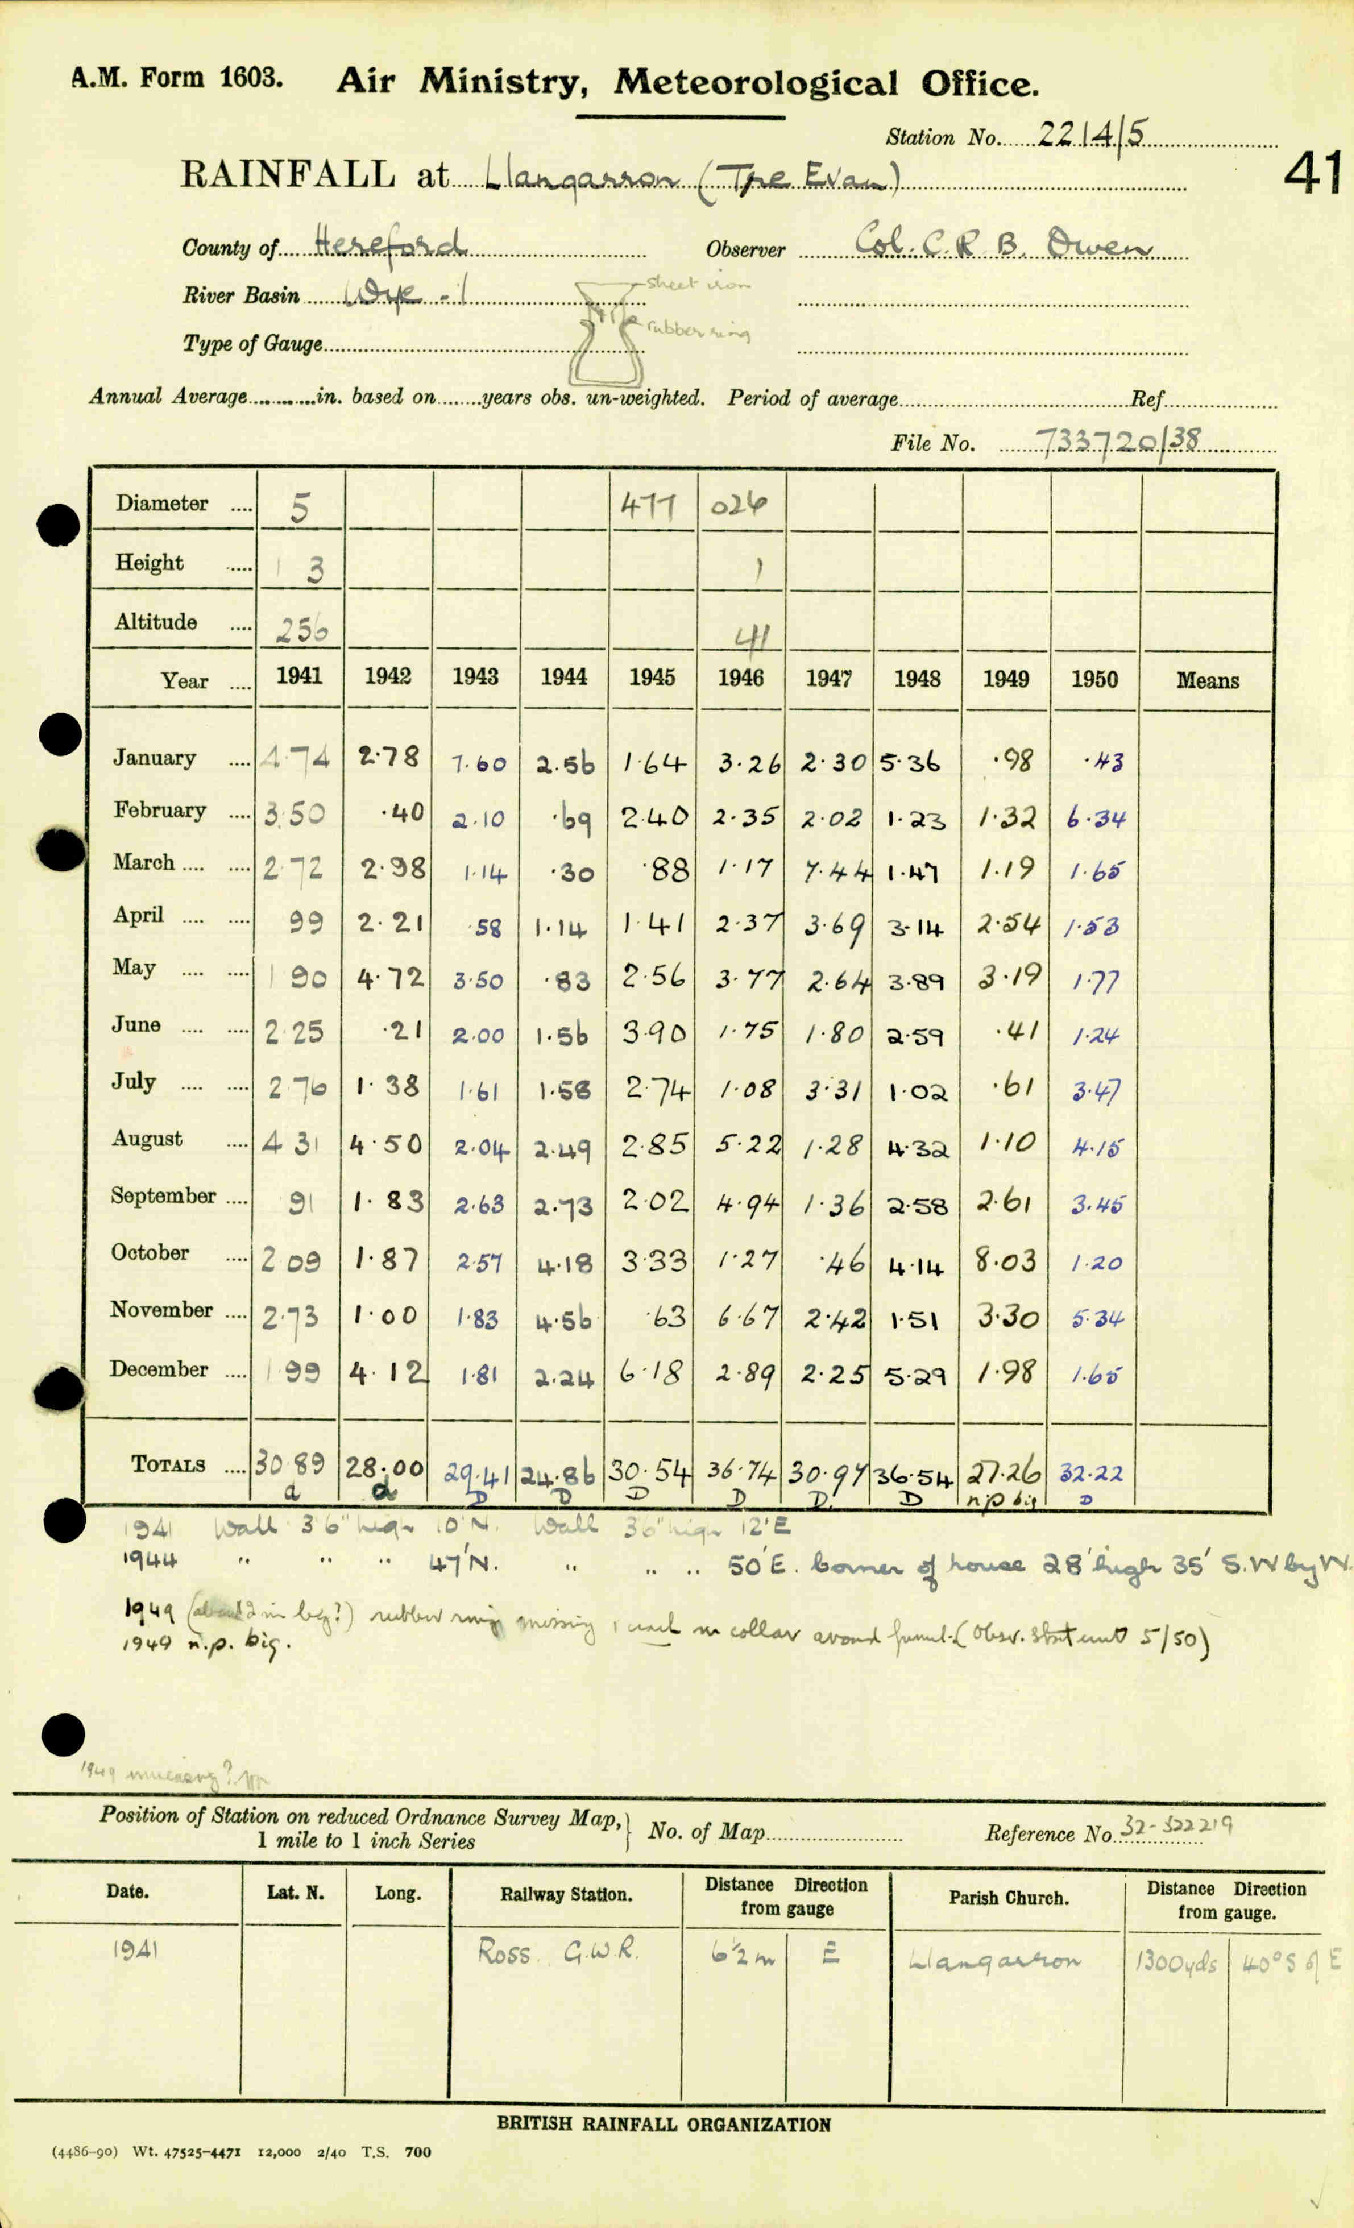 A.M. Form 1603. Air Ministry, Meteorological Office.
Station No. 2214/5
41
RAINFALL at Llangarron (Tre Evan)
County of Hereford Observer Col. C. R. B. Owen
River Basin Wye - 1
sheet iron
rubber ring
Type of Gauge
Annual Average in. based on years obs. un-weighted. Period of average Ref
File No. 733720/38
Diameter 5 477 026
Height 1 3 1
Altitude 256 41
Year 1941 1942 1943 1944 1945 1946 1947 1948 1949 1950 Means
January 4.74 2.78 7.60 2.56 1.64 3.26 2.30 5.36 .98 .43
February 3.50 .40 2.10 .69 2.40 2.35 2.02 1.23 1.32 6.34
March 2.72 2.98 1.14 .30 .88 1.17 7.44 1.47 1.19 1.65
April 99 2.21 .58 1.14 1.41 2.37 3.69 3.14 2.54 1.53
May 1 90 4.72 3.50 .83 2.56 3.77 2.64 3.89 3.19 1.77
June 2 25 .21 2.00 1.56 3.90 1.75 1.80 2.59 .41 1.24
July 2 76 1.38 1.61 1.58 2.74 1.08 3.31 1.02 .61 3.47
August 4 31 4.50 2.04 2.49 2.85 5.22 1.28 4.32 1.10 4.15
September 91 1.83 2.63 2.73 2.02 4.94 1.36 2.58 2.61 3.45
October 2 09 1.87 2.57 4.18 3.33 1.27 .46 4.14 8.03 1.20
November 2.73 1.00 1.83 4.56 .63 6.67 2.42 1.51 3.30 5.34
December 1 99 4.12 1.81 2.24 6.18 2.89 2.25 5.29 1.98 1.65
TOTALS 30 89 28.00 29.41 24.86 30.54 36.74 30.97 36.54 27.26 32.22
d d D D D D D D n p big D
1941 Wall 3'6" high 10'N. Wall 3'6" high 12'E
1944 " " " 47'N. " " " 50'E. Corner of house 28' high 35' S.W by W.
1949 (about 2 in big?) rubber ring missing, crack in collar around funnel. (Obsr. 5/50)
1949 n.p. big.
1949
Position of Station on reduced Ordnance Survey Map, 1 mile to 1 inch Series } No. of Map Reference No. 32-322219
Date. Lat. N. Long. Railway Station. Distance Direction from gauge Parish Church. Distance Direction from gauge.
1941 Ross. G.W.R. 6½ m E Llangarron 1300yds 40° S of E
BRITISH RAINFALL ORGANIZATION
(4486-90) Wt. 47525-4471 12,000 2/40 T.S. 700